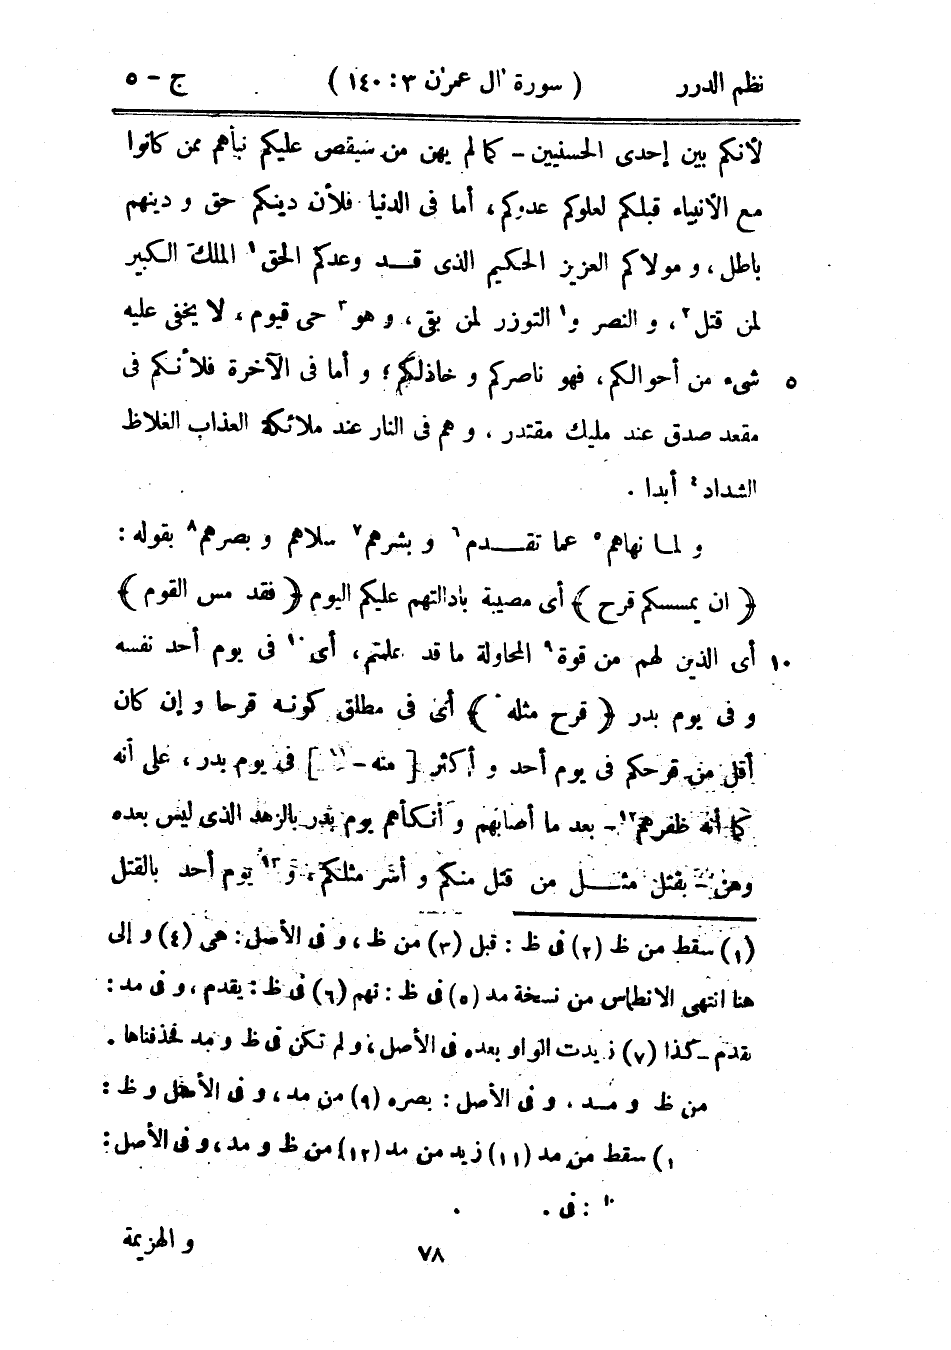 نظم الدرر ( سورة اٰل عمرٰن ٣ : ١٤٠ ) ج - ٥
لأنكم بين إحدى الحسنيين - كما لم يهن من سيقص عليكم نبأهم ممن كانوا
مع الأنبياء قبلكم لعلوكم عدوكم ، أما فى الدنيا فلأن دينكم حق و دينهم
باطل ، و مولاكم العزيز الحكيم الذى قد وعدكم الحق ١ الملك الكبير
لمن قتل ٢ ، و النصر و ١ التوزر لمن بقى ، و هو ٣ حى قيوم ، لا يخفى عليه
شىء من أحوالكم ، فهو ناصركم و خاذلهم ؛ و أما فى الآخرة فلأنكم فى ٥
مقعد صدق عند مليك مقتدر ، و هم فى النار عند ملائكة العذاب الغلاظ
الشداد ٤ أبدا .
و لما نهاهم ٥ عما تقدم ٦ و بشرهم ٧ سلاهم و بصرهم ٨ بقوله :
﴿ ان يمسسكم قرح ﴾ أى مصيبة بادالتهم عليكم اليوم ﴿ فقد مس القوم ﴾
أى الذين لهم من قوة ٩ المحاولة ما قد علمتم ، أى ١٠ فى يوم أحد نفسه ١٠
و فى يوم بدر ﴿ قرح مثله ﴾ أى فى مطلق كونه قرحا و إن كان
أقل من قرحكم فى يوم أحد و أكثر [ منه - ١١ ] فى يوم بدر ، على أنه
كما أنه ظفرهم ١٢ - بعد ما أصابهم و أنكأهم يوم بدر بالزهد الذى ليس بعده
وهن - بقتل مثل من قتل منكم و أسر مثلكم ، و ١٣ يوم أحد بالقتل
(١) سقط من ظ (٢) فى ظ : قبل (٣) من ظ ، و فى الأصل : هى (٤) و إلى
هنا انتهى الانطماس من نسخة مد (٥) فى ظ : نهم (٦) فى ظ : يقدم ، و فى مد :
نقدم - كذا (٧) زيدت الواو بعده فى الأصل ، و لم تكن فى ظ و مد فحذفناها .
من ظ و مد ، و فى الأصل : بصره (٩) من مد ، و فى الأصل و ظ :
) سقط من مد (١١) زيد من مد (١٢) من ظ و مد ، و فى الأصل :
: فى .
٧٨ و الهزيمة